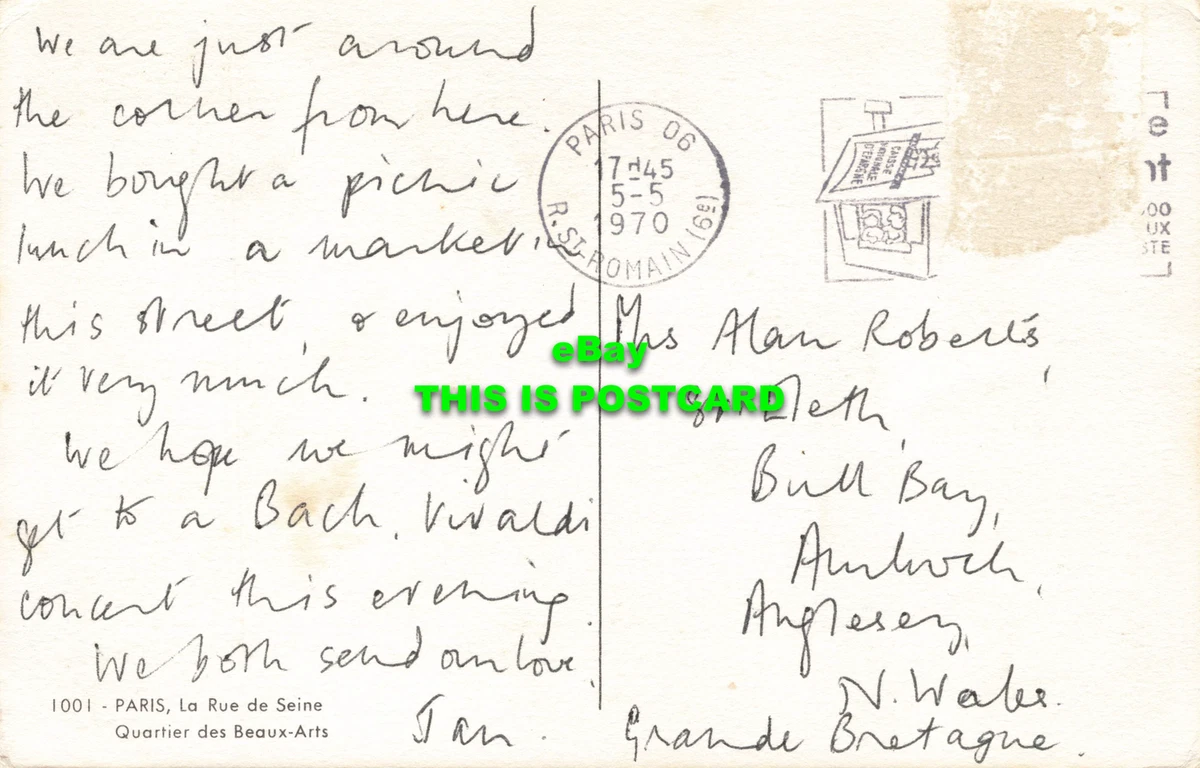 We are just around
the corner from here.
We bought a picnic
lunch in a market in
this street, & enjoyed
it very much.
We hope we might
get to a Bach, Vivaldi
concert this evening.
We both send our love,
Jan.
1001 - PARIS, La Rue de Seine
Quartier des Beaux-Arts
PARIS 06
17H45
5-5
1970
R. ST-ROMAIN (6e)
CAISSE
NATIONALE
D'EPARGNE
Mrs Alan Roberts,
Bull Bay,
Amlwch,
Anglesey,
N. Wales.
Grande Bretagne.
eBay
THIS IS POSTCARD